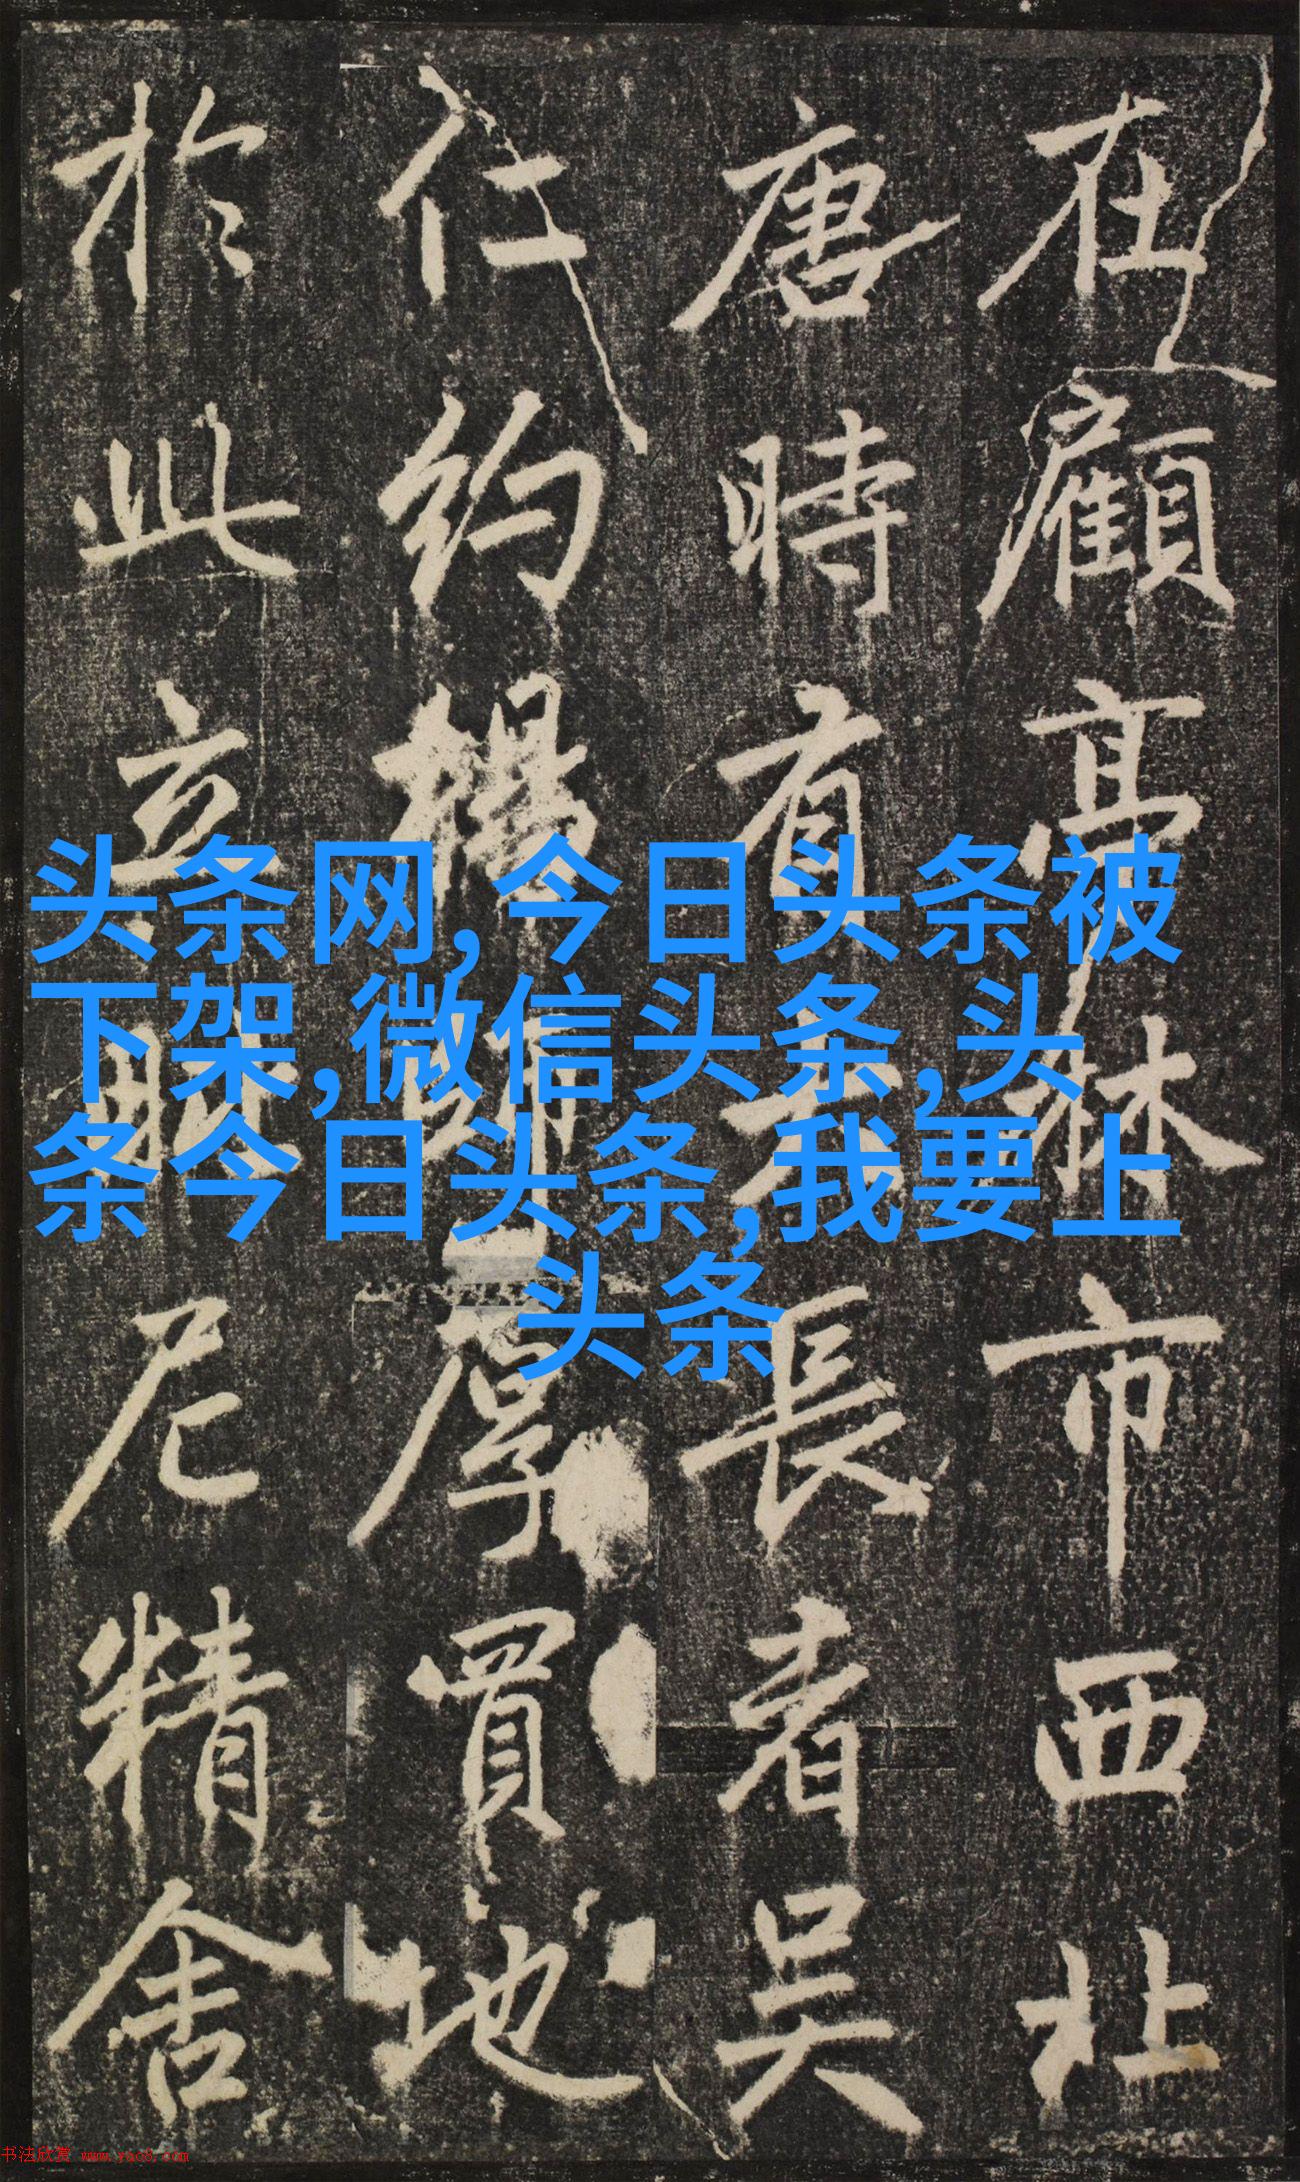 在顧亭林市西北
唐時有大長者吴
仁約楊厚買地
於此立毗尼精舍
头条网,今日头条被
下架,微信头条,头
条今日头条,我要上
头条
书法欣赏 www.yac8.com